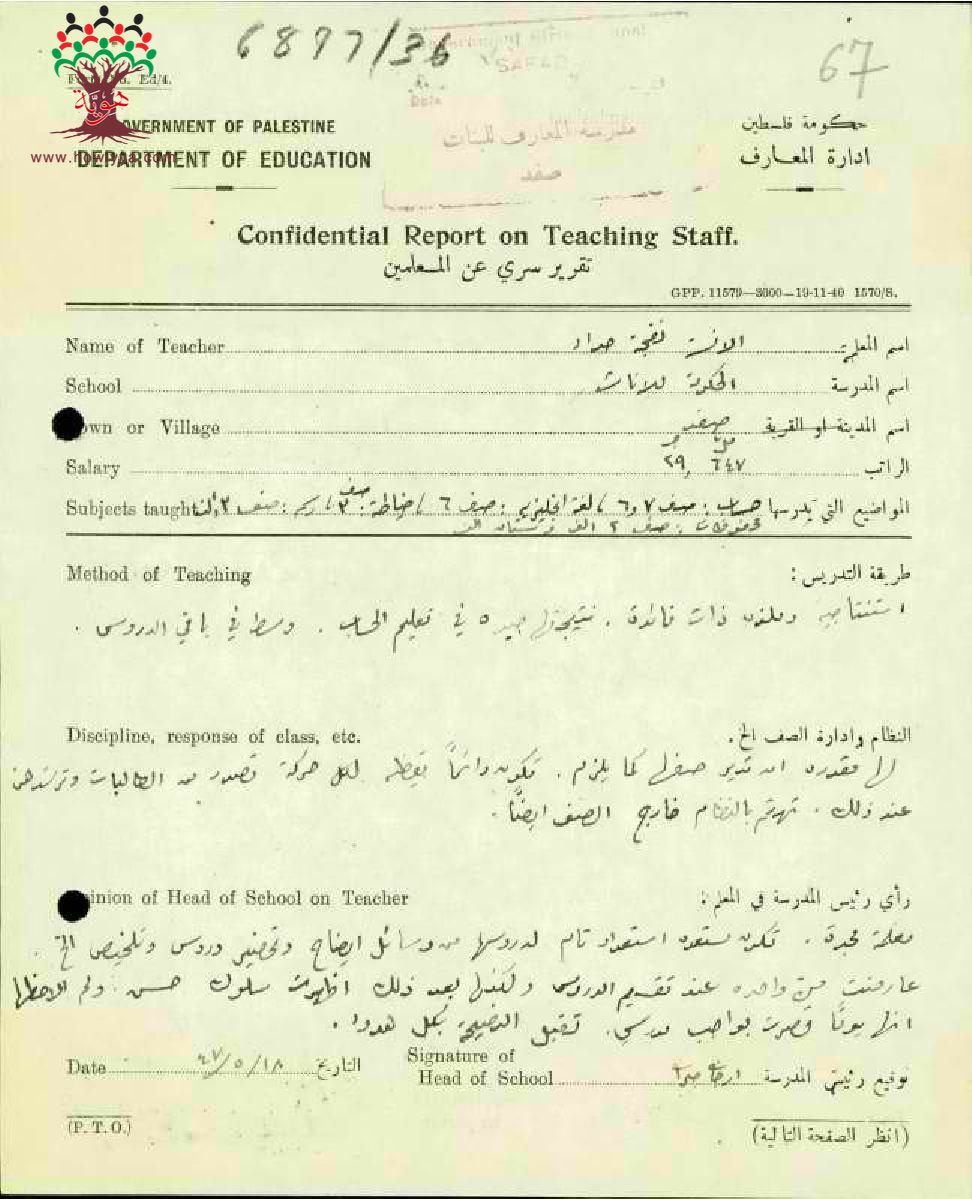 6897/36
67
SAFAD
Date
مدرسة المعارف للبنات
صفد
Ed/4.
هوية
www.howiyya.com
GOVERNMENT OF PALESTINE
حكومة فلسطين
DEPARTMENT OF EDUCATION
ادارة المعارف
Confidential Report on Teaching Staff.
تقرير سري عن المعلمين
GPP. 11579—3000—19-11-40 1570/S.
Name of Teacher الانسة حداد اسم المعلم
School الحكومة للاناث اسم المدرسة
Town or Village صفد اسم المدينة او القرية
Salary ٢٩, ٦٤٧ الراتب
Subjects taught المواضيع التي يدرسها حساب: صف ٧ و٦ / لغة انجليزية: صف ٦ / خياطة: صف ٣
Method of Teaching طريقة التدريس:
استنتاجية ذات فائدة. نتيجتها جيدة في تعليم الحساب. وسط في باقي الدروس.
Discipline, response of class, etc. النظام وادارة الصف الخ.
لها مقدرة ان تدير صفها كما يلزم. تكون دائماً يقظة لكل حركة تصدر من الطالبات وترشدهن
عند ذلك. تهتم بالنظام خارج الصف ايضاً.
Opinion of Head of School on Teacher رأي رئيس المدرسة في المعلم:
معلمة مجدة. تكون مستعدة استعداد تام لدروسها من وسائل ايضاح وتحضير دروس وتلخيص الخ.
عارضت مرة واحدة عند تقسيم الدروس ولكنها بعد ذلك اظهرت سلوك حسن. ولم الاحظ
انها يوماً قصرت بواجب مدرسي. تقبل النصيحة بكل هدوء.
Date ٤٧/٥/١٨ التاريخ
Signature of
Head of School توقيع رئيس المدرسة
(P. T. O.)
(انظر الصفحة التالية)